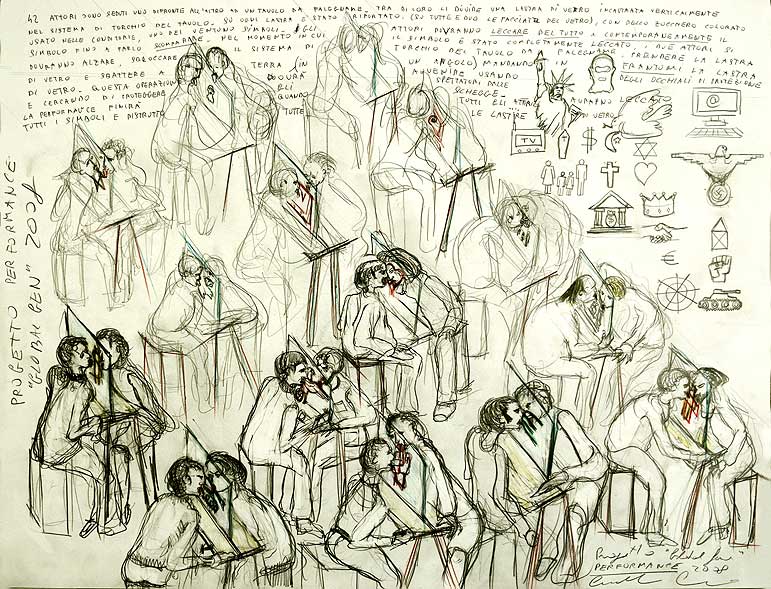 42 ATTORI SONO SEDUTI UNO DI FRONTE ALL'ALTRO AD UN TAVOLO DA FALEGNAME. TRA DI LORO LI DIVIDE UNA LASTRA DI VETRO INCASTRATA VERTICALMENTE
NEL SISTEMA DI TORCHIO DEL TAVOLO. SU OGNI LASTRA È STATO RIPORTATO, (SU TUTTE E DUE LE FACCIATE DEL VETRO), CON DELLO ZUCCHERO COLORATO
USATO NELLE CUCINATE, UNO DEI VENTUNO SIMBOLI. GLI ATTORI DOVRANNO LECCARE DEL TUTTO E CONTEMPORANEAMENTE IL
SIMBOLO FINO A FARLO SCOMPARIRE. NEL MOMENTO IN CUI IL SIMBOLO È STATO COMPLETAMENTE LECCATO I DUE ATTORI SI
DOVRANNO ALZARE, SBLOCCARE IL SISTEMA DI TORCHIO DEL TAVOLO DA FALEGNAME, PRENDERE LA LASTRA
DI VETRO E SBATTERE A TERRA IN UN ANGOLO, MANDANDO IN FRANTUMI LA LASTRA
DI VETRO. QUESTA OPERAZIONE DOVRÀ AVVENIRE USANDO DEGLI OCCHIALI DI PROTEZIONE
E CERCANDO DI PROTEGGERE GLI SPETTATORI DALLE SCHEGGE.
LA PERFORMANCE FINIRÀ QUANDO TUTTI GLI ATTORI AVRANNO LECCATO
TUTTI I SIMBOLI E DISTRUTTO TUTTE LE LASTRE DI VETRO
TV
@
$
€
PROGETTO PERFORMANCE
"GLOBAL PEN" 2008
Progetto "Global Pen"
PERFORMANCE 2008